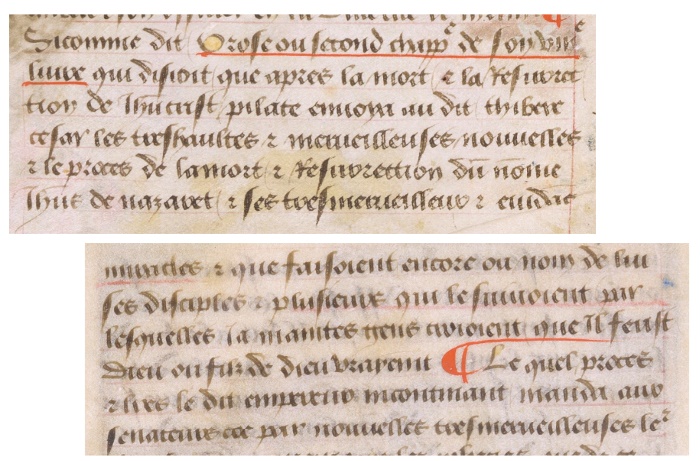 Sicomme dit Orose ou second chapp^e de son viii^e
livre qui disoit que apres la mort & la Resurrec
tion de Jhucrist pilate envoya au dit thibere
cesar les treshaultes & merveilleuses nouvelles
& le proces de la mort & Resurrection du nomme
Jhus de nazaret & ses tresmerveilleux & euidãs
miracles & que faisoient encore ou nom de lui
ses disciples & plusieurs qui le suivoient par
lesquelles la maintes gens croioient que Il feust
Dieu ou filz de dieu vrayemt ¶ Le quel proces
& lrẽs le dit empereur incontinant manda aux
senateurs par nouvelles tresmerveilleuses le